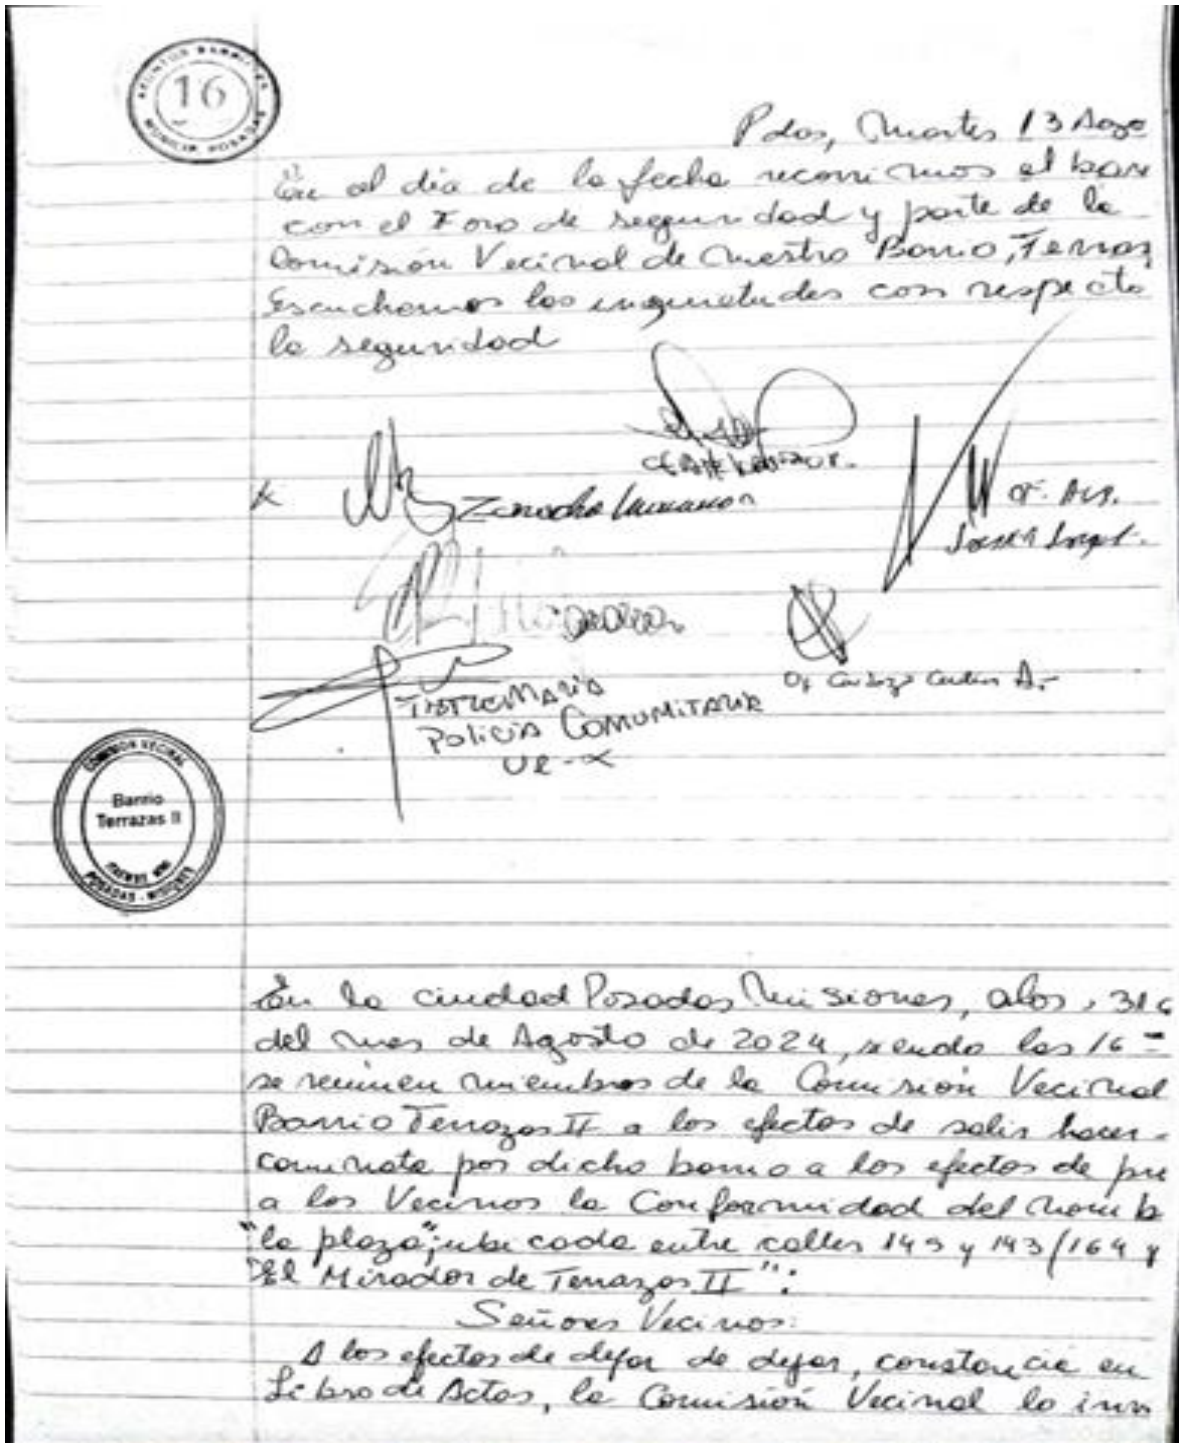 ASUNTOS BARRIALES
16
MUNICIP. POSADAS
Pdas, Martes 13 Ago
En el día de la fecha recorrimos el barr
con el Foro de seguridad y parte de la
Comisión Vecinal de Nuestro Barrio, Terraz
Escuchamos las inquietudes con respecto
la seguridad
Of. Cardozo Carlos A.-
Policia COMUNITARIA
UR-X
COMISION VECINAL
Barrio
Terrazas II
ITAEMBE MINI
POSADAS - MISIONES
En la ciudad Posadas Misiones, a los 31
del mes de Agosto de 2024, siendo las 16
se reúnen miembros de la Comisión Vecinal
Barrio Terrazas II a los efectos de salir hacer
caminata por dicho barrio a los efectos de pre
a los Vecinos la Conformidad del nomb
"la plaza"; ubicada entre calles 145 y 143/164 y
"El Mirador de Terrazas II":
Señores Vecinos:
A los efectos de dejar de dejar, constancia en
Libro de Actas, la Comisión Vecinal lo inv